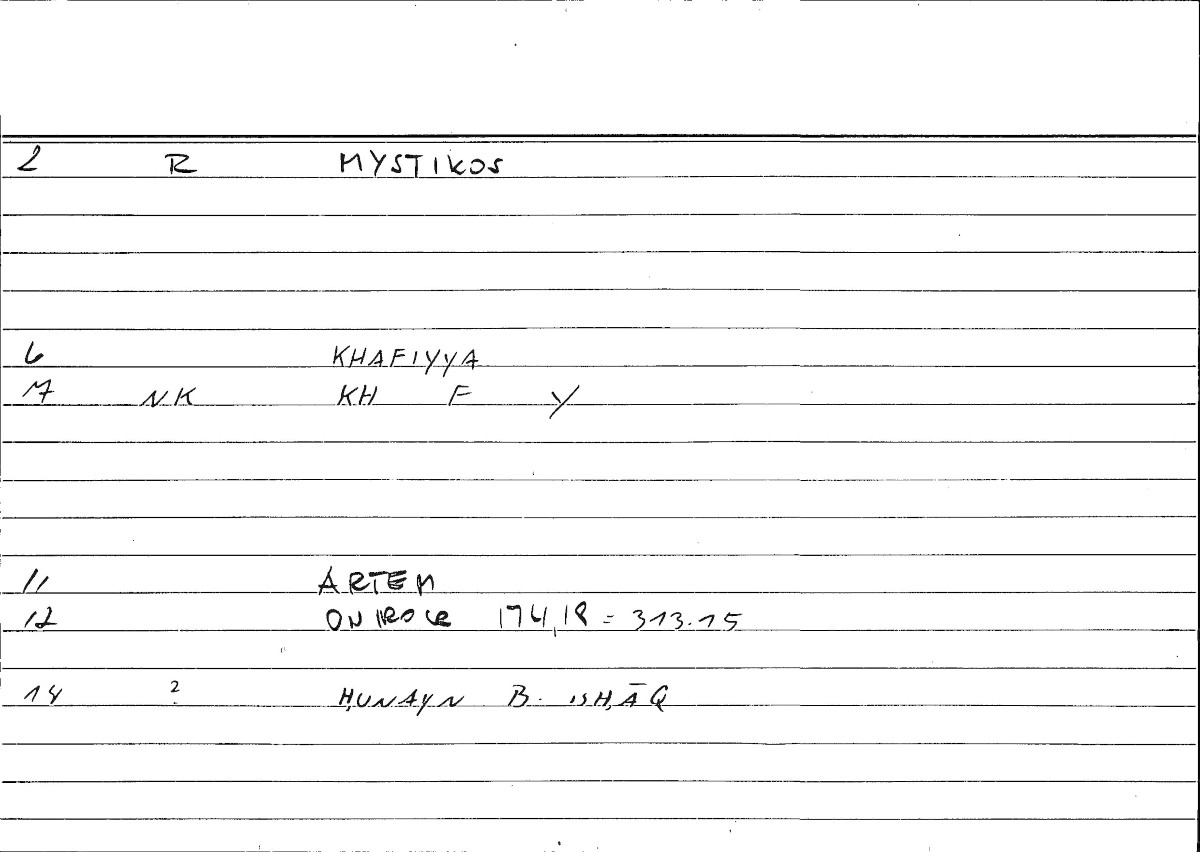 2 R MYSTIKOS
6 KHAFIYYA
7 NK KH F Y
11 ARTEM
12 ONIROCR 174,18 = 313.15
14 ? ḤUNAYN B. ISḤĀQ